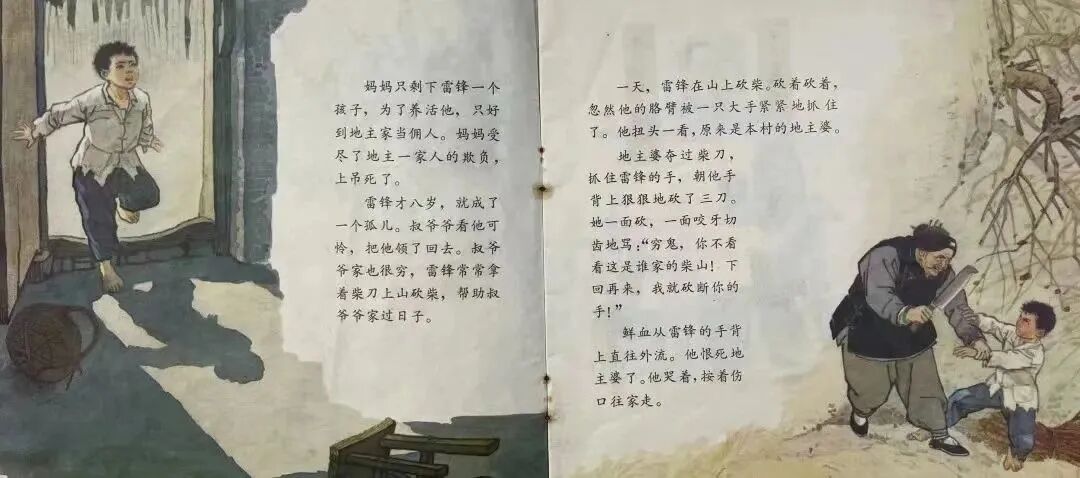 妈妈只剩下雷锋一个
孩子，为了养活他，只好
到地主家当佣人。妈妈受
尽了地主一家人的欺负，
上吊死了。
雷锋才八岁，就成了
一个孤儿。叔爷爷看他可
怜，把他领了回去。叔爷
爷家也很穷，雷锋常常拿
着柴刀上山砍柴，帮助叔
爷爷家过日子。
一天，雷锋在山上砍柴。砍着砍着，
忽然他的胳臂被一只大手紧紧地抓住
了。他扭头一看，原来是本村的地主婆。
地主婆夺过柴刀，
抓住雷锋的手，朝他手
背上狠狠地砍了三刀。
她一面砍，一面咬牙切
齿地骂：“穷鬼，你不看
看这是谁家的柴山！下
回再来，我就砍断你的
手！”
鲜血从雷锋的手背
上直往外流。他恨死地
主婆了。他哭着，按着伤
口往家走。